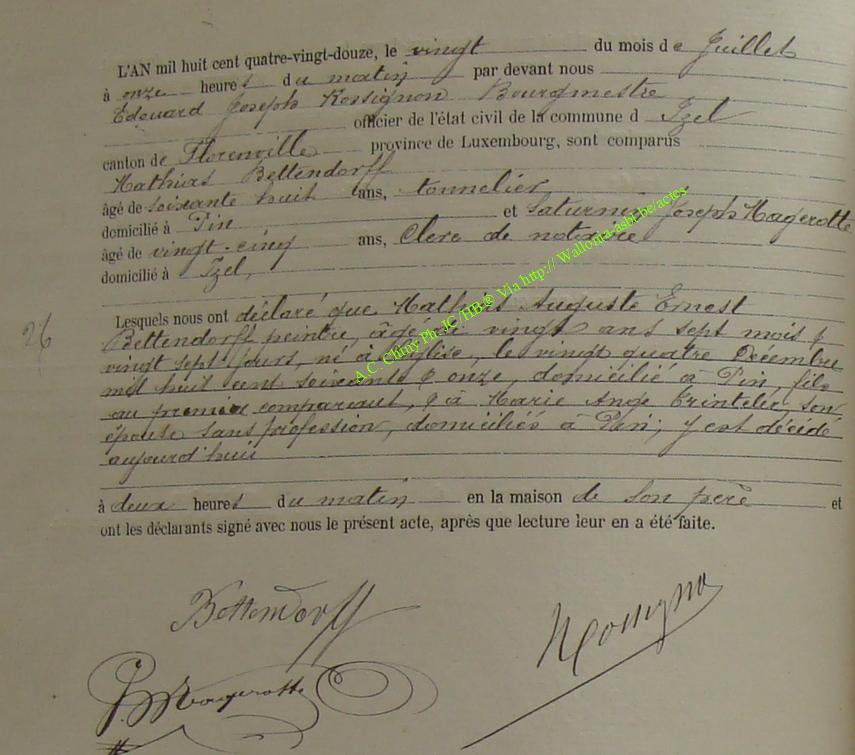 L'AN mil huit cent quatre-vingt-douze, le vingt du mois de Juillet
à onze heures du matin par devant nous
Edouard Joseph Rossignon Bourgmestre
officier de l'état civil de la commune d Izel
canton de Florenville province de Luxembourg, sont comparus
Mathias Bettendorff
âgé de soixante huit ans, tonnelier
domicilié à Pin et Saturnin Joseph Magerotte
âgé de vingt-cinq ans, Clerc de notaire
domicilié à Izel,
26
Lesquels nous ont déclaré que Mathias Auguste Ernest
Bettendorff peintre, âgé de vingt ans sept mois &
vingt sept jours, né à Assenois, le vingt quatre Décembre
mil huit cent soixante & onze, domicilié à Pin, fils
au premier comparant, & à Marie Ange son
épouse sans profession, domiciliés à Pin; y est décédé
aujourd'hui
à deux heures du matin en la maison de son père et
ont les déclarants signé avec nous le présent acte, après que lecture leur en a été faite.
Bettendorff
Rossignon
J. Magerotte
A.C. Chiny Ph JC /HB@ Via http:// Wallonia-asbl.be/actes